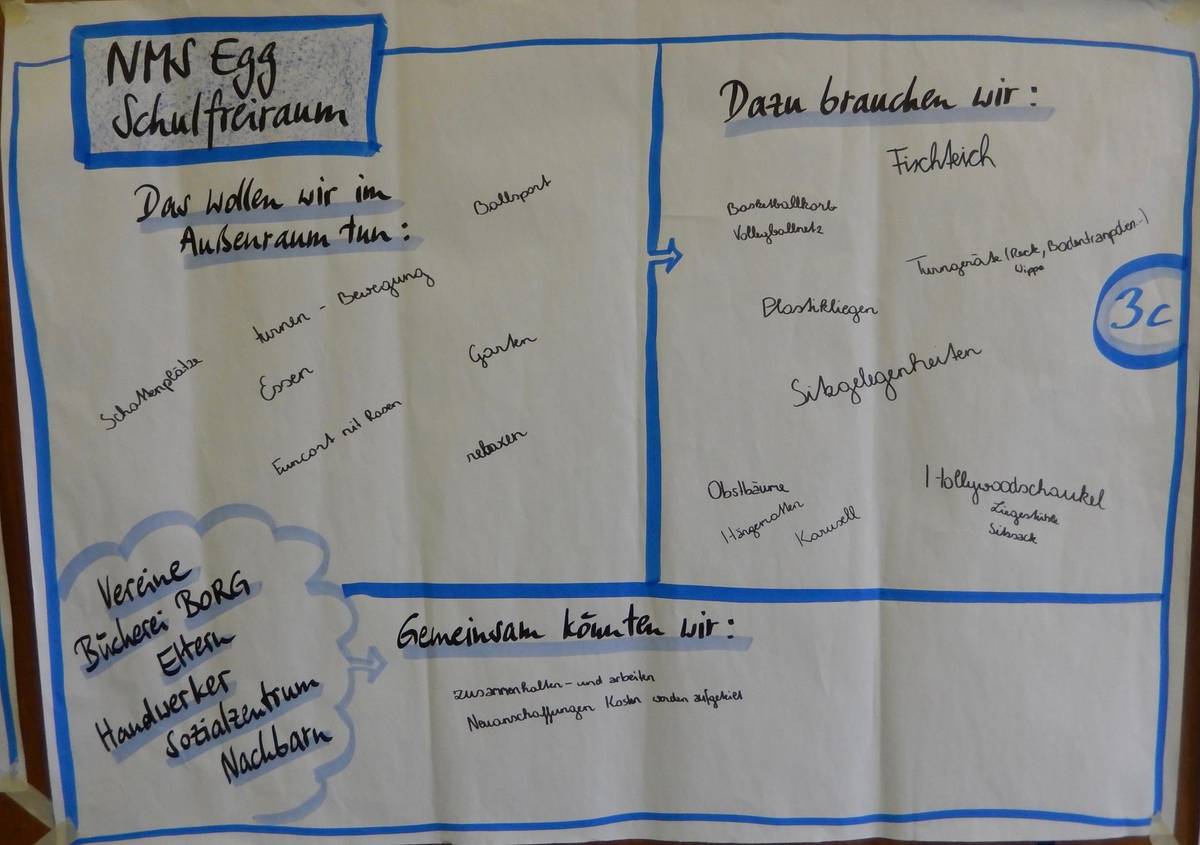 NMS Egg
Schulfreiraum
Das wollen wir im
Außenraum tun:
Ballsport
turnen - Bewegung
Schattenplätze
Essen
Garten
Funcort mit Rasen
relaxen
Dazu brauchen wir:
Fischteich
Basketballkorb
Volleyballnetz
Turngeräte (Reck, Bodentrampolin..)
Wippe
Plastikliegen
3c
Sitzgelegenheiten
Obstbäume
Hängematten
Karusell
Hollywoodschaukel
Liegestühle
Sitzsack
Vereine
Bücherei BORG
Eltern
Handwerker
Sozialzentrum
Nachbarn
Gemeinsam könnten wir:
zusammenhalten - und arbeiten
Neuanschaffungen Kosten werden aufgeteilt